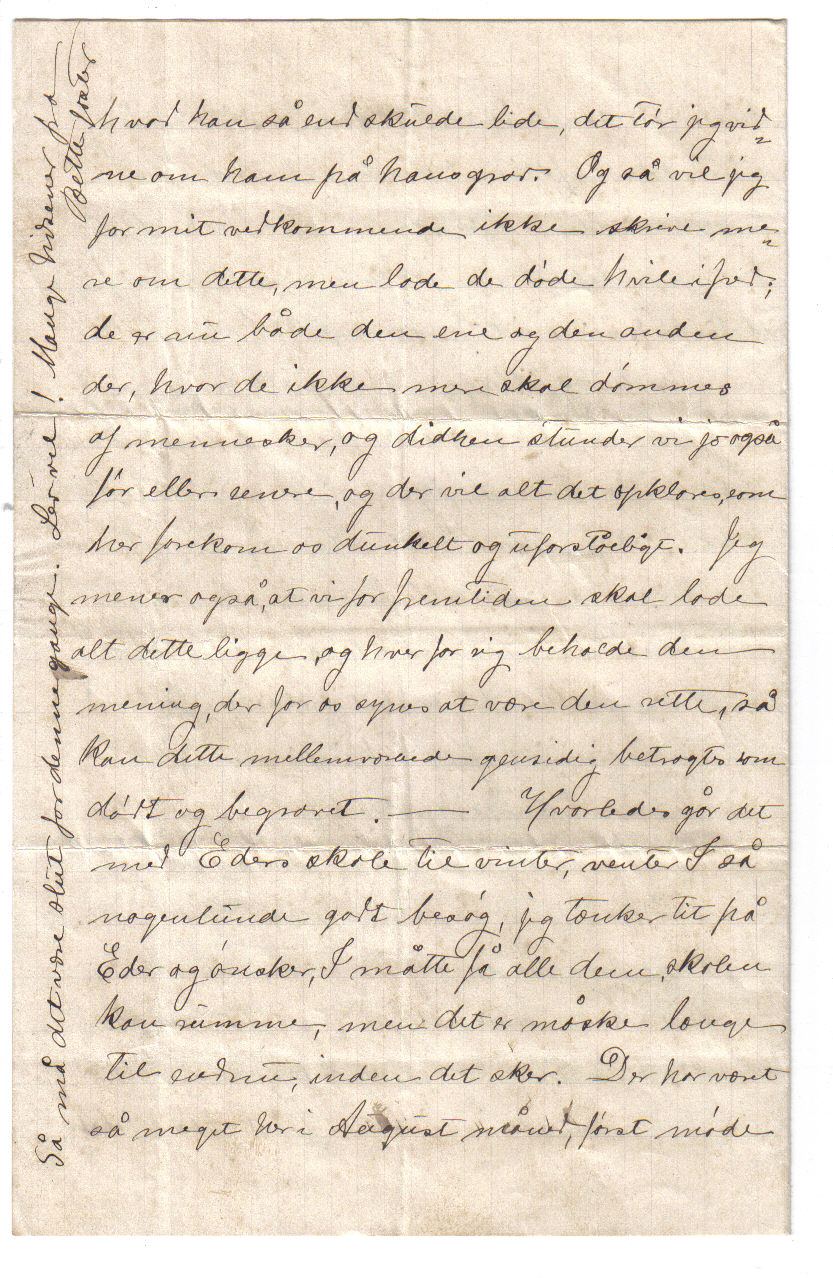 hvad han så end skulde lide, det tør jeg vid=
ne om ham på hans grav. Og så vil jeg
for mit vedkommende ikke skrive me=
re om dette, men lade de døde hvile i fred;
de er nu både den ene og den anden
der, hvor de ikke mere skal dømmes
af mennesker, og didhen stunder vi jo også
før eller senere, og der vil alt det opklares, som
her forekom os dunkelt og uforståeligt. Jeg
mener også, at vi for fremtiden skal lade
alt dette ligge, og hver for sig beholde den
mening, der for os synes at være den rette, så
kan dette mellemværende gensidig betragtes som
dødt og begravet. — Hvorledes går det
med Eders skole til vinter, venter I så
nogenlunde godt besøg, jeg tænker tit på
Eder og ønsker, I måtte få alle dem, skolen
kan rumme, men det er måske længe
til endnu, inden det sker. Der har været
så meget her i August måned, først møde
Så må det være slut for denne gange. Lev vel! Mange hilsener fra
Bette